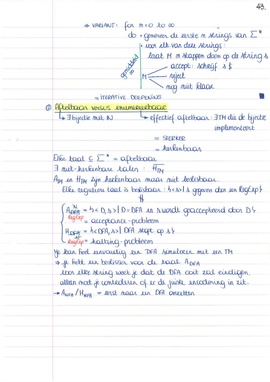 43.
→ VARIANT: for n=0 to ∞
do • genereer de eerste n strings van Σ*
• voor elk van deze strings:
laat M n stappen doen op de string s
accept: schrijf s $
M reject
nog niet klaar
= ITERATIVE DEEPENING
Aftelbaar versus enumereerbaar
→ ∃ bijectie met ℕ → effectief aftelbaar: ∃TM die de bijectie
implementeert
= sterker
= herkenbaar
Elke taal ⊆ Σ* = aftelbaar
∃ niet-herkenbare talen:
zijn herkenbaar maar niet beslisbaar.
Elke reguliere taal is beslisbaar:
| D = DFA en s wordt geaccepteerd door D}
= acceptance-probleem
= {<D,s> | DFA stopt op s}
= halting-probleem
Je kan heel eenvoudig een DFA simuleren met een TM
→ je hebt een beslisser voor de taal A DFA
voor elke string weet je dat de DFA ooit zal eindigen
alleen moet je controleren of er de juiste encodering in zit.
= eerst naar een DFA omzetten